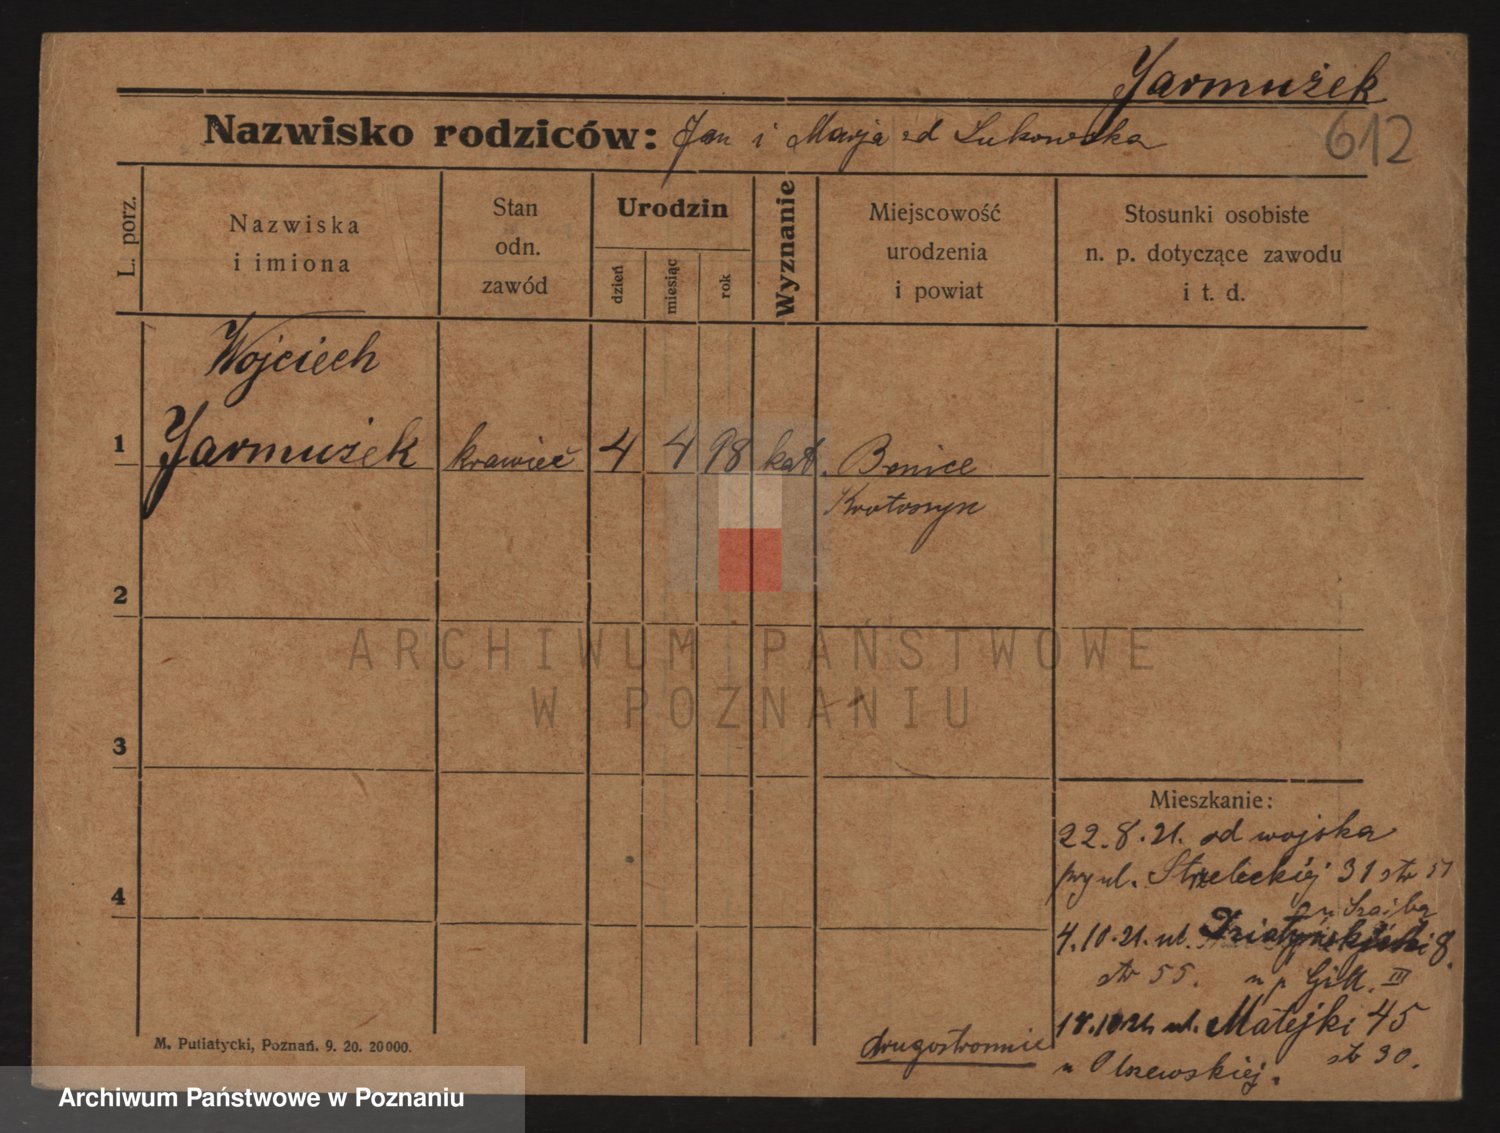 Jarmużek
612
Nazwisko rodziców: Jan i Marja zd Łukowska
L. porz.
Nazwiska
i imiona
Stan
odn.
zawód
Urodzin
dzień
miesiąc
rok
Wyznanie
Miejscowość
urodzenia
i powiat
Stosunki osobiste
n. p. dotyczące zawodu
i t. d.
Wojciech
1 Jarmużek krawiec 4 4 98 kat. Benice
Krotoszyn
2
ARCHIWUM PAŃSTWOWE
W POZNANIU
3
4
Mieszkanie:
22.8.21. od wojska
przy ul. Strzeleckiej 31 str 51
4.10.21. ul. 8.
str 55. n p III
18.10.21. ul. Matejki 45
u Olszewskiej. str 30.
drugostronnie
M. Putiatycki, Poznań. 9. 20. 20000.
Archiwum Państwowe w Poznaniu